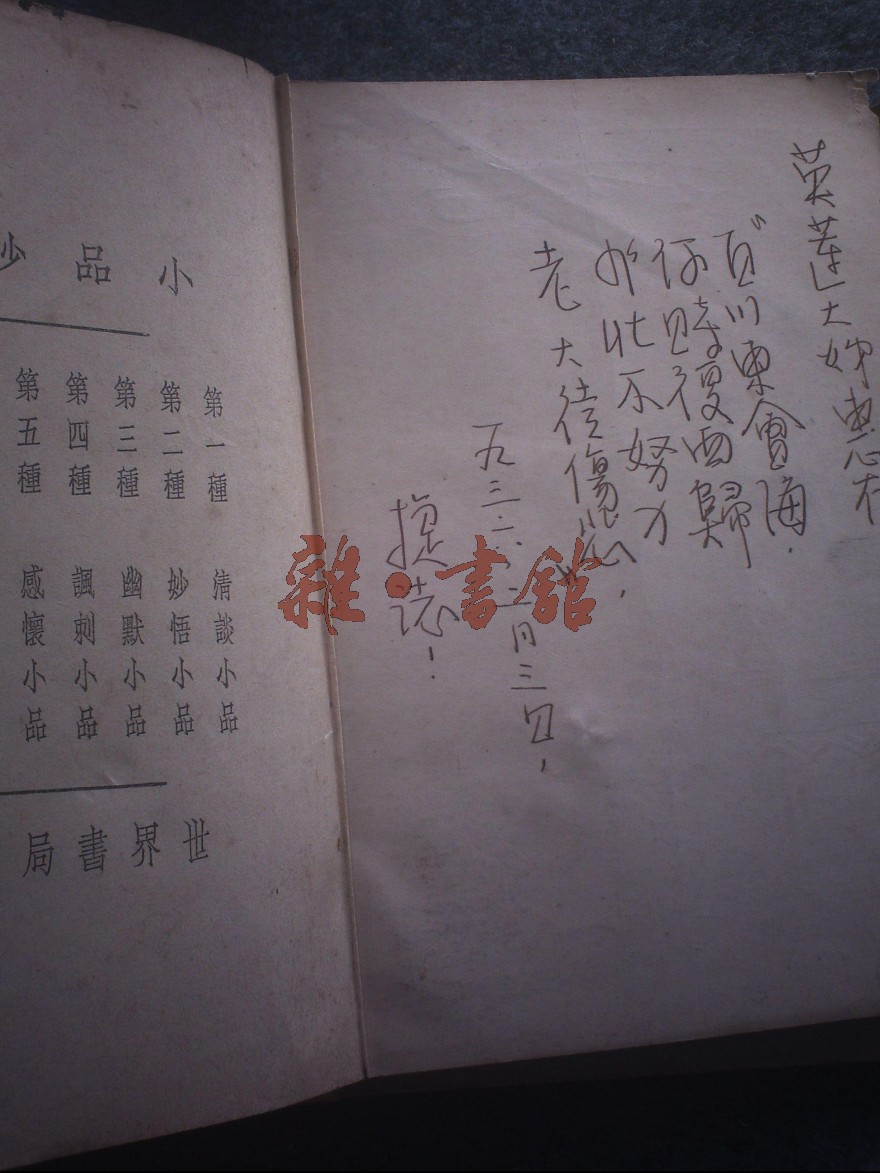 英蓮大姊惠存
"百川東會海,
何時復西歸
少壯不努力
老大徒傷悲,
一九三六、二月三日,
誌!
雜·書館
小品妙
第一種 清談小品
第二種 妙悟小品
第三種 幽默小品
第四種 諷刺小品
第五種 感懷小品
世界書局